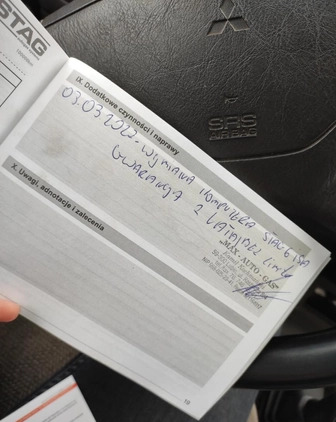 STAG
SRS
AIRBAG
IX. Dodatkowe czynności i naprawy
03.03.2022 - WYMIANA KOMPUTERA STAG
GWARANCJA 2 LATA, BEZ LIMI
"MAX-AUTO-GAS"
X. Uwagi, adnotacje i zalecenia
19